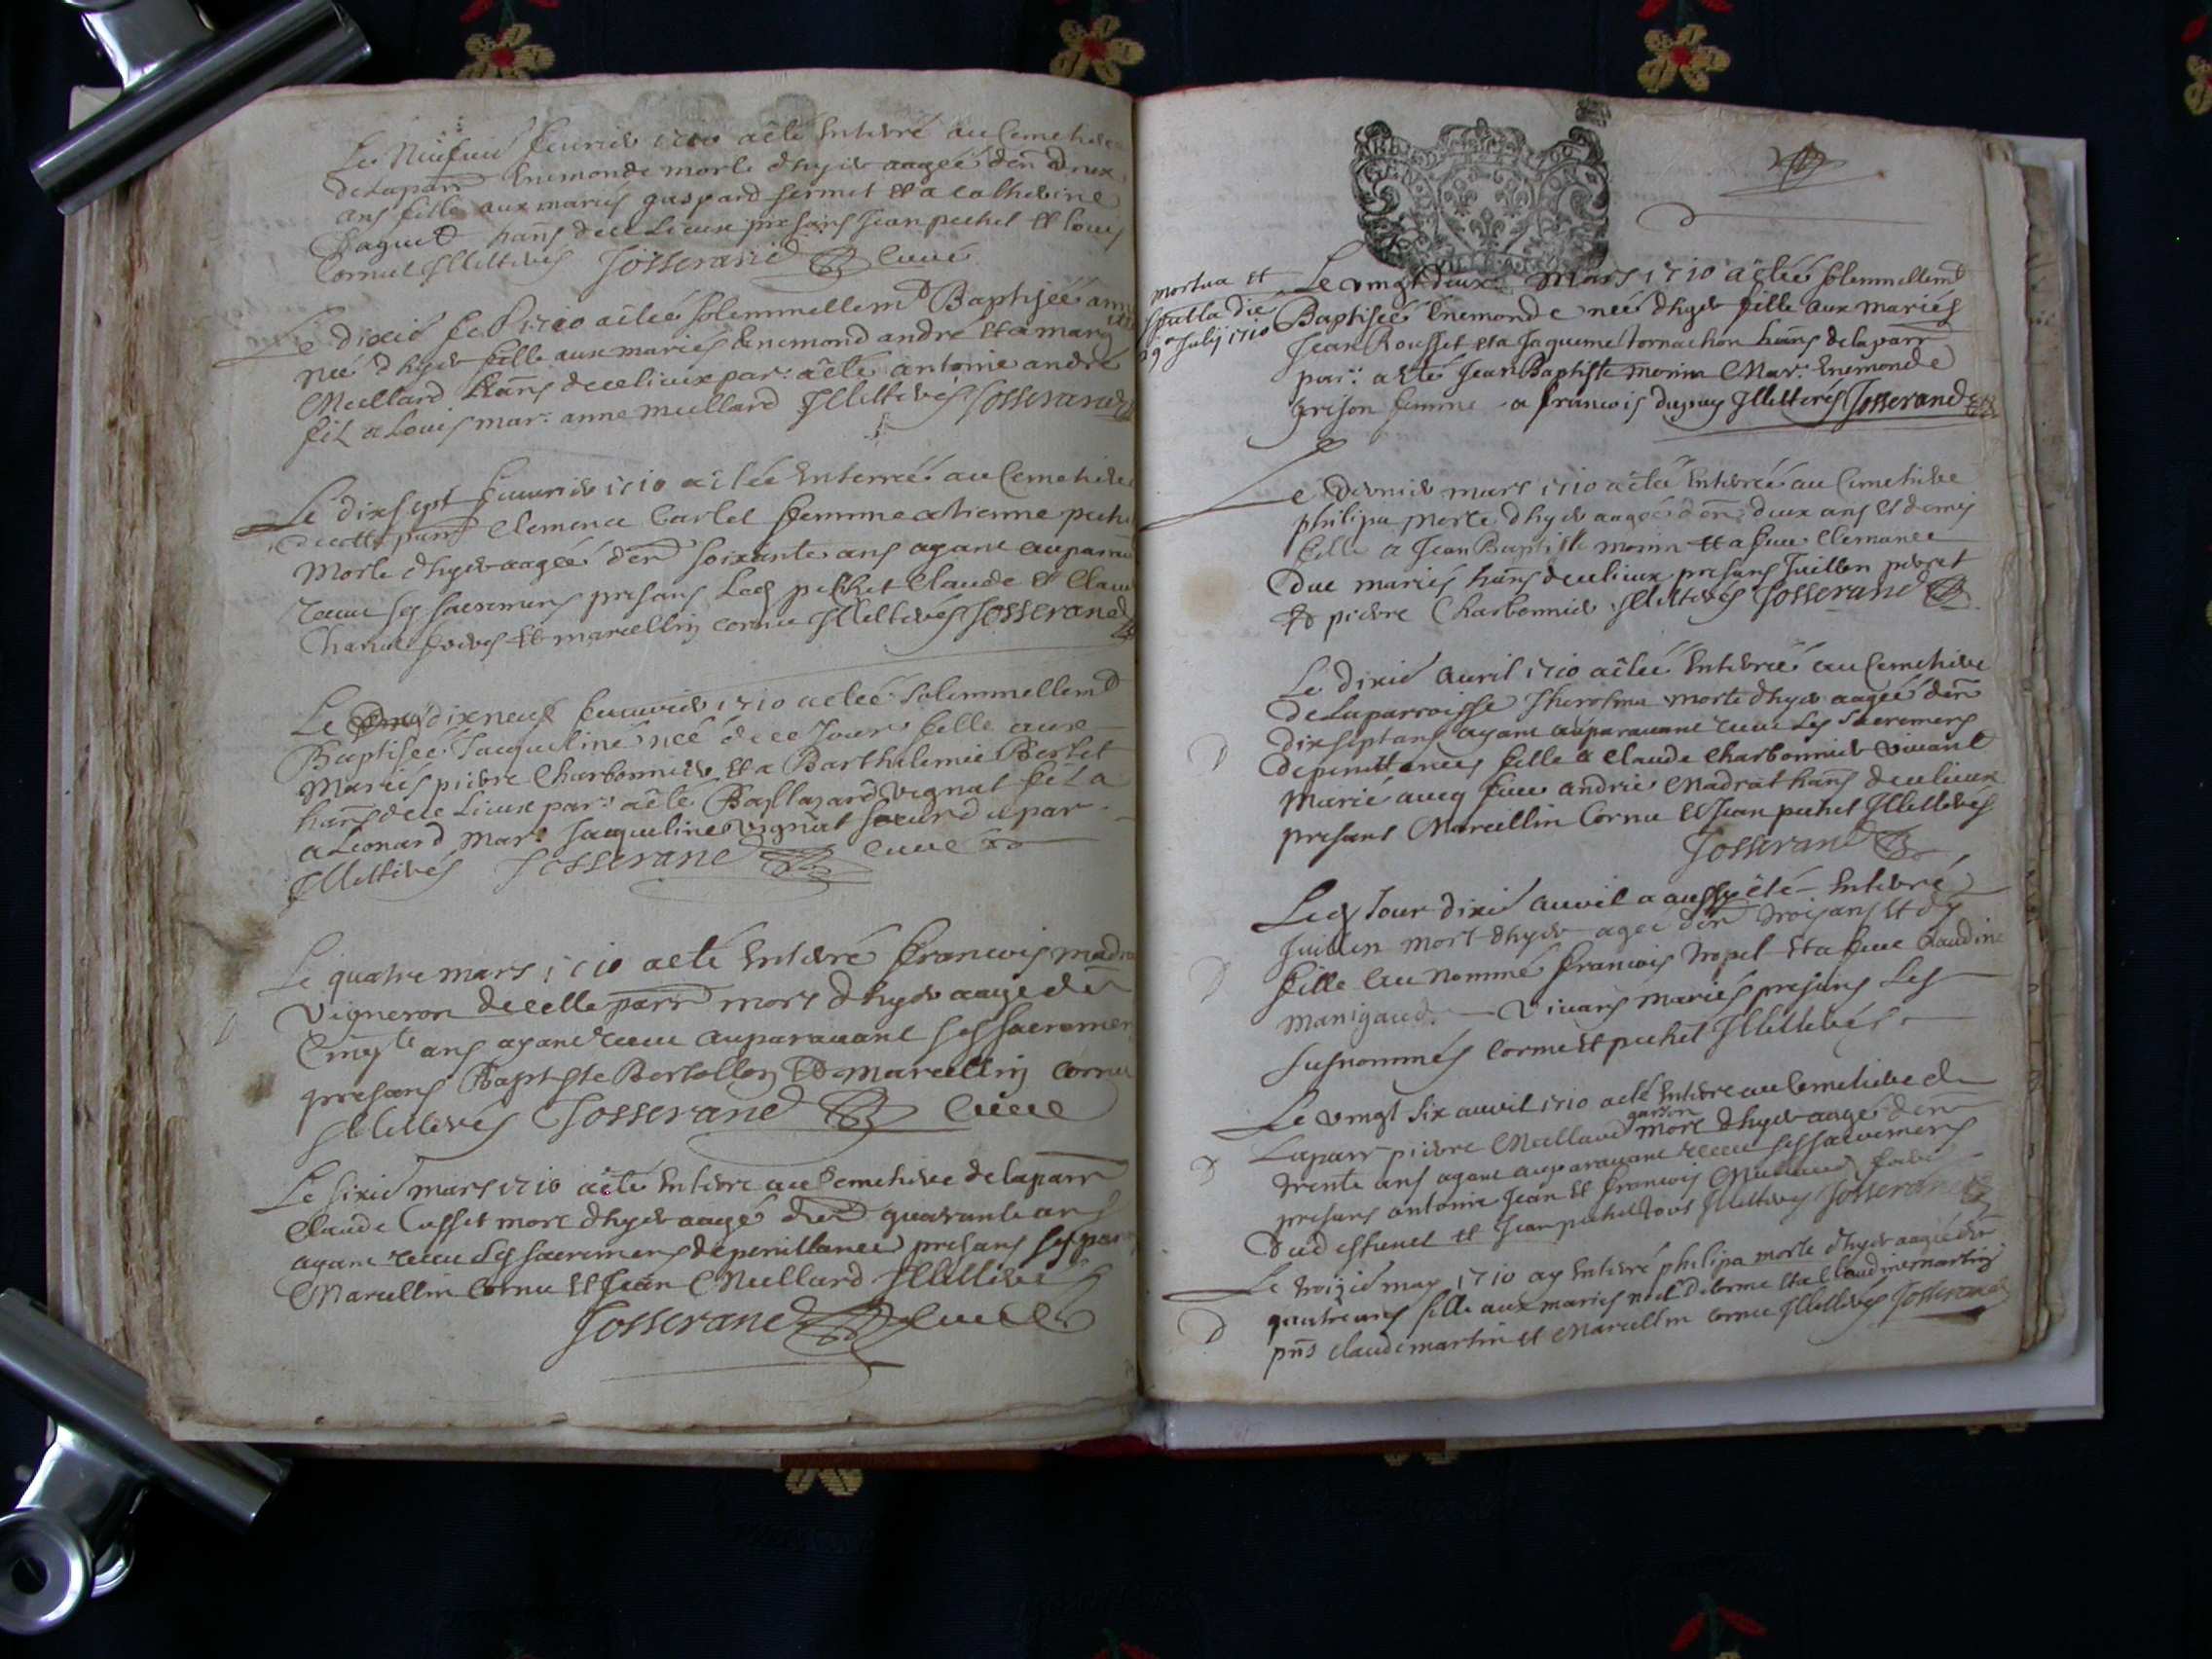 Le Neufuié feurier 1710 a êté Enterré au Cemetiere
de Laparr Enemonde morte d'hyer aagée d'en deux
ans fille aux mariés gaspard fermet et a catherine
hans de ce Lieux presans Jean pechet et Louis
Cornu Illitterés Josserand Curé
Le dixié feb 1710 a êtée solemnellemt Baptisée anne
née d'hyer fille aux mariés Enemond andré et a marg
Meillard hans de ce lieux par: a êté antoine andré
fil a Louis mar: anne meillard Illitterés Josserand
Le dixsept feurier 1710 a êtée Enterrée au Cemetiere
de cette parr Clemence Carlet femme a
morte d'hyer aagée d'en soixante ans ayant auparau
receu ses sacremens presans Les pechet Claude et Claude
freres et marcellin cornu Illitterés Josserand
Le dixneuf feurier 1710 a êtée solemnellemt
Baptisée Jacqueline née de ce Jour fille aux
Mariés pierre Charbonnier et a Barthelemie Bertet
hans de ce Lieux par: a êté Baltazard vignat fil a
a Leonard Mar: Jacqueline vignat soeur du par
Illitterés Josserand curé
Le quatre mars 1710 a êté Enterré francois madra
vigneron de cette parr mort d'hyer aagé d'en
Cinqte ans ayant receu auparauant ses sacremen
presans Baptiste Bertollon et marcellin cornu
Illitterés Josserand Curé
Le sixié mars 1710 a êté Enterré au Cemetiere de laparr
Claude Cusset mort d'hyer aagé d'en quarante ans
ayant receu Les sacremens de penittance presans
Marcellin Cornu et Jean Meillard Illitterés
Josserand Curé
mortua et
spulta die
29a Julij 1710
Le vingt deux Mars 1710 a êtée solemnellemt
Baptisée Enemonde née d'hyer fille aux mariés
Jean Rousset et a Jaqueme tornachon hans de laparr
par: a êté Jean Baptiste morin Mar: Enemonde
grison femme a francois dupuy Illitterés Josserand
Le dernier mars 1710 a êtée Enterrée au Cimetiere
philipa morte d'hyer aagée d'en deux ans et demis
fille a Jean Baptiste morin et a feue Clemance
Duc mariés hans de ce lieux presans Juillien perret
et pierre Charbonnier Illitterés Josserand
Le dixié auril 1710 a êtée Enterrée au Cemetiere
de Laparroisse Jherosme morte d'hyer aagée d'en
dixsept ans ayant auparauant receu Les sacremens
de penittances fille a Claude Charbonnier viuant
marié aueq feue andrée Madrat hans de ce lieux
presans Marcellin Cornu et Jean pechet Illitterés
Josserand
Led Jour dixié auril a aussy êté Enterré
Juillien mort d'hyer agée d'en trois ans et dy
fille au nommé francois tropel et a feue Claudine
manigaud viuans mariés presans Les
susnommés Cornu et pechet Illitterés
Le vingt six auril 1710 a êté Enterré au Cemetiere de
garson
Laparr pierre Meillard mort d'hyer aagé d'en
trente ans ayant auparauant receu ses sacremens
presans antoine Jean et francois Meillard freres
dud effunct et Jean pechet tous Illitterés Josserand
Le troizié may 1710 ay Enterré philipa morte d'hyer aagée d'en
quatre ans fille aux mariés noel Delorme et a Claudine martin
pñs Claude martin et Marcellin cornu Illitterés Josserand